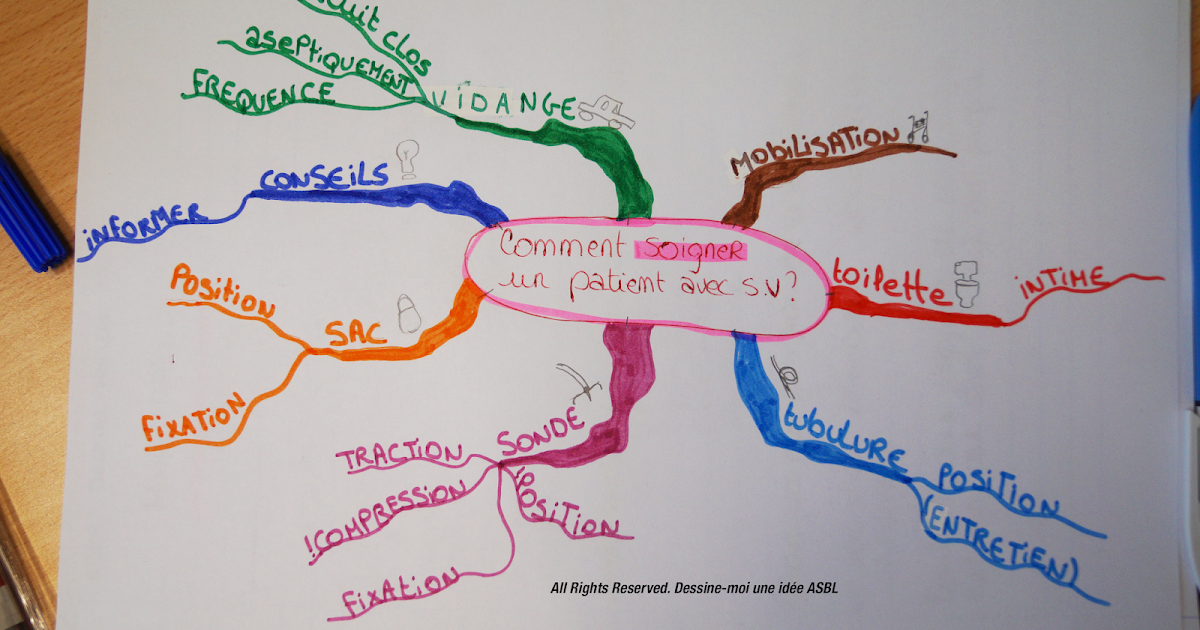 clos
aseptiquement
FREQUENCE
VIDANGE
MObiLiSATiON
CONSEiLS
iNFORMER
Comment soigner
un patient avec S.V?
toilette
iNTiME
Position
SAC
FiXATiON
SONDE
TRACTiON
!COMPRESSiON
POSiTiON
FiXAtiON
tubuLURE
POSiTiON
(ENTRETiEN)
All Rights Reserved. Dessine-moi une idée ASBL